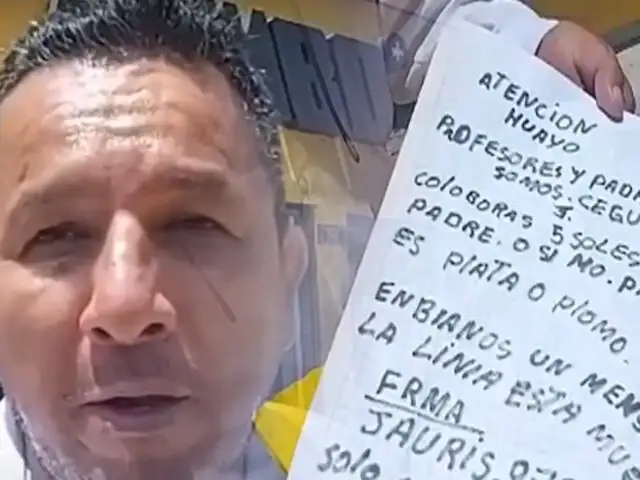 ATENCION
HUAYO
PROFESORES Y PAD
SOMOS, CEGU
COLOBORAS 5 SOLES
PADRE. O SI NO. P
ES PLATA O PLOMO.
ENBIANOS UN MENS
LA LINIA ESTA MUE
FRMA.
JAURIS.
SOLO